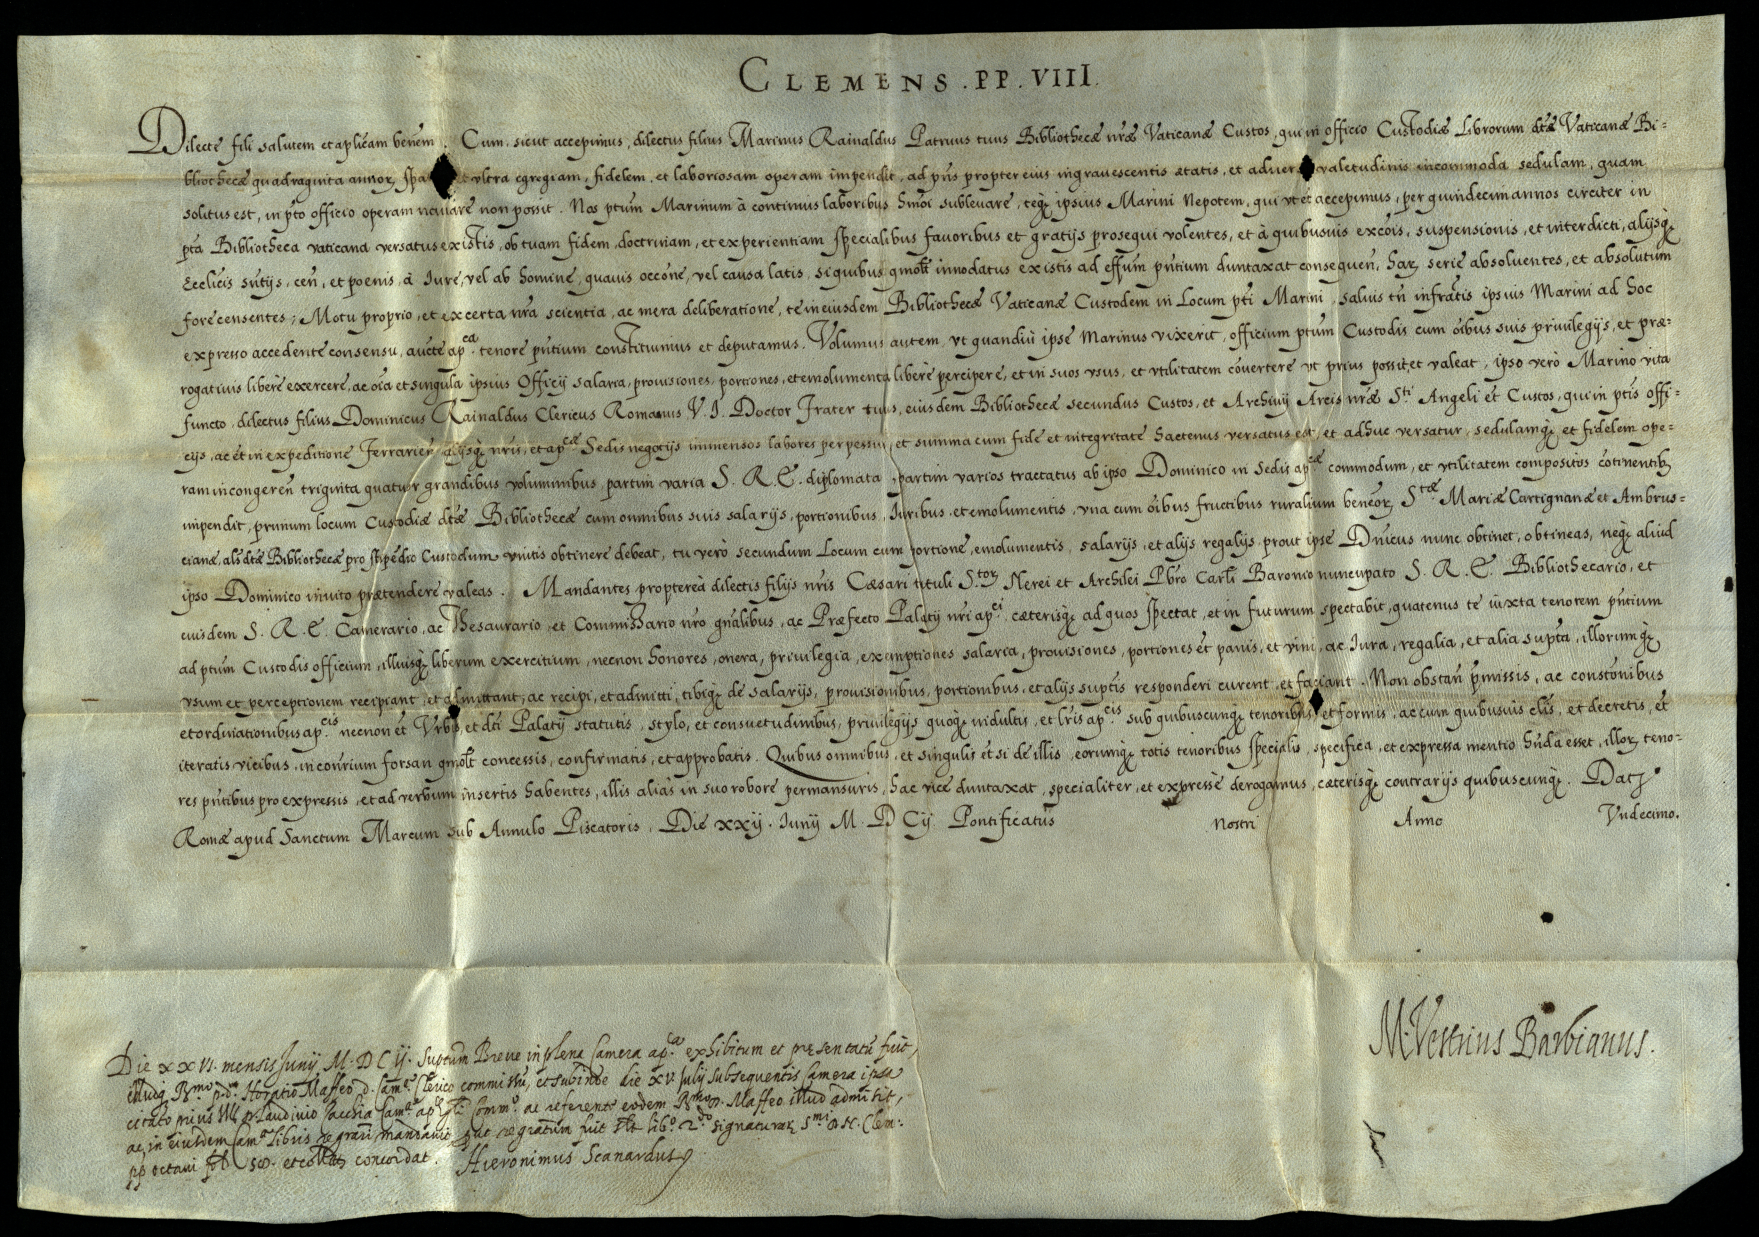 CLEMENS . PP . VIII .
Dilecte fili salutem et aplicam benem . Cum, sicut accepimus, dilectus filius Marinus Rainaldus Patruus tuus Bibliothecæ nræ Vaticanæ Custos, qui in officio Custodiæ Librorum dtæ Vaticanæ Bi=
bliothecæ quadraginta annor, spa et vltra egregiam, fidelem, et laboriosam operam impendit, ad pns propter eius ingrauescentis ætatis, et aduers valetudinis incommoda sedulam, quam
solitus est, in pto officio operam nauare non possit . Nos ptum Marinum à continuis laboribus hmoi subleuare, teq; ipsius Marini Nepotem, qui vt et accepimus, per quindecim annos circiter in
pta Bibliotheca vaticana versatus existis, ob tuam fidem, doctrinam, et experientiam specialibus fauoribus et gratijs prosequi volentes, et à quibusuis excois, suspensionis, et interdicti, alijsq;
Ecclicis sntijs, cen, et poenis, à Iure, vel ab homine, quauis occone, vel causa latis, si quibus qmolt innodatus existis ad effum pntium duntaxat consequen, har serie absoluentes, et absolutum
fore censentes ; Motu proprio, et ex certa nra scientia, ac mera deliberatione, te in eiusdem Bibliothecæ Vaticanæ Custodem in Locum pti Marini, saluis tn infrattis ipsius Marini ad hoc
expresso accedente consensu, aucte apca tenore pntium constituimus et deputamus . Volumus autem, vt quandiù ipse Marinus vixerit, officium ptum Custodis cum oibus suis priuilegijs, et præ=
rogatiuis liberè exercere, ac oia et singula ipsius Officij salaria, prouisiones, portiones, et emolumenta liberè percipere, et in suos vsus, et vtilitatem cõuertere vt prius possit, et valeat, ipso verò Marino vita
functo, dilectus filius Dominicus Rainaldus Clericus Romanus V . I . Doctor Frater tuus, eiusdem Bibliothecæ secundus Custos, et Archiuij Arcis nræ Sti Angeli et Custos, qui in ptis offi=
cijs, ac et in expeditione Ferrarien alijsq; nris, et apcæ Sedis negotijs immensos labores perpessus, et summa cum fide et integritate hactenus versatus est, et adhuc versatur, sedulamq; et fidelem ope=
ram in congeren triginta quatuor grandibus voluminibus, partim varia S . R . E . diplomata, partim varios tractatus ab ipso Dominico in Sedis apcæ commodum, et vtilitatem compositos cõtinentib;
impendit, primum locum Custodiæ dtæ Bibliothecæ cum omnibus suis salarijs, portionibus, Iuribus, et emolumentis, vna cum oibus fructibus ruralium beneor, Stæ Mariæ Cartignanæ et Ambrus=
cianæ, als dtæ Bibliothecæ pro stipedio Custodum vnitis obtinere debeat, tu verò secundum Locum cum portione, emolumentis, salarijs, et alijs regalijs, prout ipse Dnicus nunc obtinet, obtineas, neq; aliud
ipso Dominico inuito prætendere valeas . Mandantes proptereà dilectis filijs nris Cæsari tituli Stor Nerei et Archilei Pbro Carli Baronio nuncupato S . R . E . Bibliothecario, et
eiusdem S . R . E . Camerario, ac Thesaurario, et Commissario nro gnalibus, ac Præfecto Palatij nri apci cæterisq; ad quos spectat, et in futurum spectabit, quatenus te iuxta tenorem pntium
ad ptum Custodis officium, illiusq; liberum exercitium, necnon honores, onera, priuilegia, exemptiones salaria, prouisiones, portiones et panis, et vini, ac Iura, regalia, et alia supta, illorumq;
vsum et perceptionem recipiant, et admittant, ac recipi, et admitti, tibiq; de salarijs, prouisionibus, portionibus, et alijs suptis responderi curent, et faciant . Non obstan pmissis, ac constonibus
et ordinationibus apcis necnon et Vrbis, et dti Palatij statutis, stylo, et consuetudinibus, priuilegijs quoq; indultis, et lris apcis sub quibuscunq; tenoribus, et formis, ac cum quibusuis clis, et decretis, et
iteratis vicibus, in contrium forsan qmolt concessis, confirmatis, et approbatis . Quibus omnibus, et singulis et si de illis, eorumq; totis tenoribus specialis, specifica, et expressa mentio hnda esset, illor teno=
res pntibus pro expressis, et ad verbum insertis habentes, illis aliàs in suo robore permansuris, hac vice duntaxat, specialiter, et expressè derogamus, cæterisq; contrarijs quibuscunq; . Dat;
Romæ apud Sanctum Marcum sub Annulo Piscatoris, Die xxij . Iunij M . D CIJ . Pontificatus nostri Anno Vndecimo .
M. Vestrius Barbianus .
Die XXVI. mensis Junij M. DC IJ . Suptum Breue in plena Camera apca exhibitum et presentatu fuit,
illudq Rmo p. d. Horatio Maffeo d. Camæ Clerico commissu, et subinde die XV. Julij subsequentis Camera ipsa
citato prius Laudiuio Zacchia Camæ apcæ Commo ac referente eodem Rmo D. Maffeo illud admisit,
ac in eiusdem Camæ Libris regrari mandauit, put regratum fuit libo 2do signaturar Smi D. N. Clem:
pp octaui fol et collatu concordat . Hieronimus Scanardus